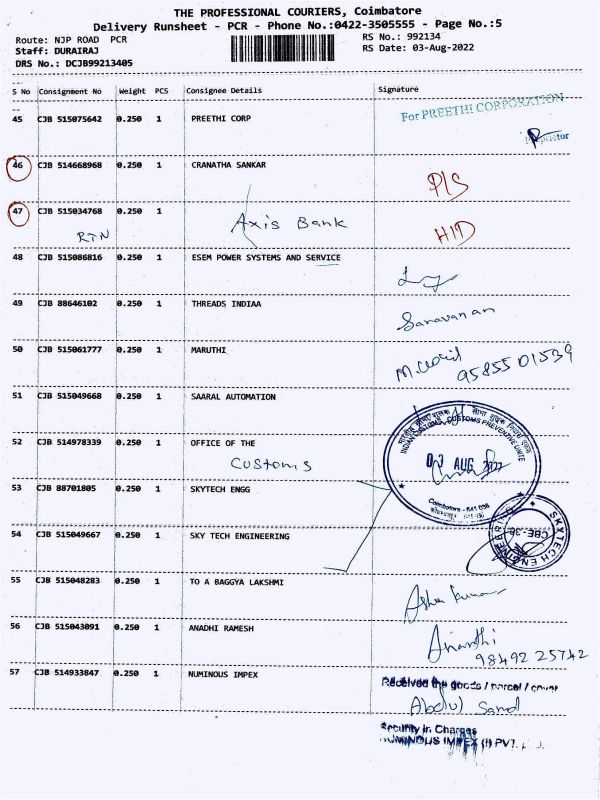 THE PROFESSIONAL COURIERS, Coimbatore
Delivery Runsheet - PCR - Phone No.:0422-3505555 - Page No.:5
Route: NJP ROAD PCR
RS No.: 992134
Staff: DURAIRAJ
RS Date: 03-Aug-2022
DRS No.: DCJB99213405
S No Consignment No Weight PCS Consignee Details Signature
45 CJB 515075642 0.250 1 PREETHI CORP
For PREETHI CORPORATION
Proprietor
46 CJB 514668968 0.250 1 CRANATHA SANKAR
P/S
47 CJB 515034768 0.250 1
RTN Axis Bank
48 CJB 515086816 0.250 1 ESEM POWER SYSTEMS AND SERVICE
49 CJB 88646102 0.250 1 THREADS INDIAA
Saravanan
50 CJB 515061777 0.250 1 MARUTHI
9585501539
51 CJB 515049668 0.250 1 SAARAL AUTOMATION
52 CJB 514978339 0.250 1 OFFICE OF THE
Customs
INDIAN CUSTOMS, CUSTOMS PREVENTIVE UNITE
03 AUG 2022
Coimbatore - 641 036
53 CJB 88701805 0.250 1 SKYTECH ENGG
54 CJB 515049667 0.250 1 SKY TECH ENGINEERING
SKYTECH ENGINEERING
55 CJB 515048283 0.250 1 TO A BAGGYA LAKSHMI
56 CJB 515043091 0.250 1 ANADHI RAMESH
Ananthi
98492 25742
57 CJB 514933847 0.250 1 NUMINOUS IMPEX
Received the goods / parcel / cover
Abdul
Security in Charges
NUMINOUS IMPEX (I) PVT.